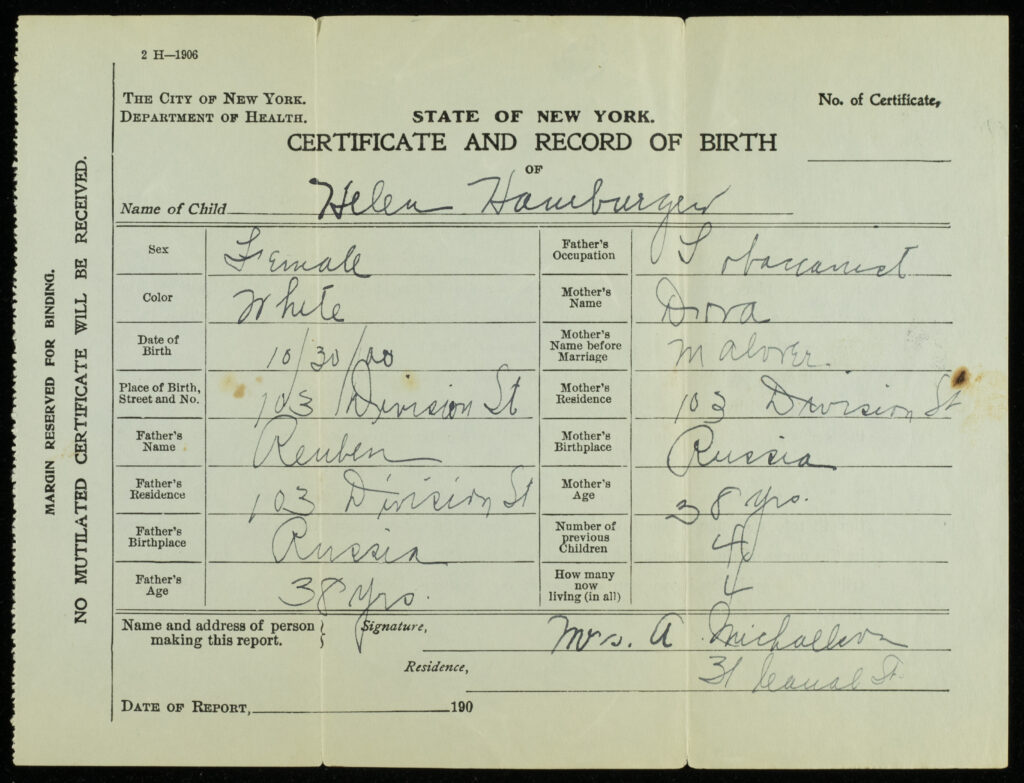 2 H—1906
THE CITY OF NEW YORK.
DEPARTMENT OF HEALTH.
No. of Certificate,
STATE OF NEW YORK.
CERTIFICATE AND RECORD OF BIRTH
OF
Name of Child Helen Hamburger
Sex Female
Father's Occupation Tobacconist
Color White
Mother's Name Dora
Date of Birth 10/30/00
Mother's Name before Marriage Malover.
Place of Birth, Street and No. 103 Division St
Mother's Residence 103 Division St
Father's Name Reuben
Mother's Birthplace Russia
Father's Residence 103 Division St
Mother's Age 38 yrs.
Father's Birthplace Russia
Number of previous Children 4
Father's Age 38 yrs.
How many now living (in all) 4
Name and address of person making this report.
Signature, Mrs. A Michaelson
Residence, 31 Canal St.
DATE OF REPORT, 190
MARGIN RESERVED FOR BINDING.
NO MUTILATED CERTIFICATE WILL BE RECEIVED.